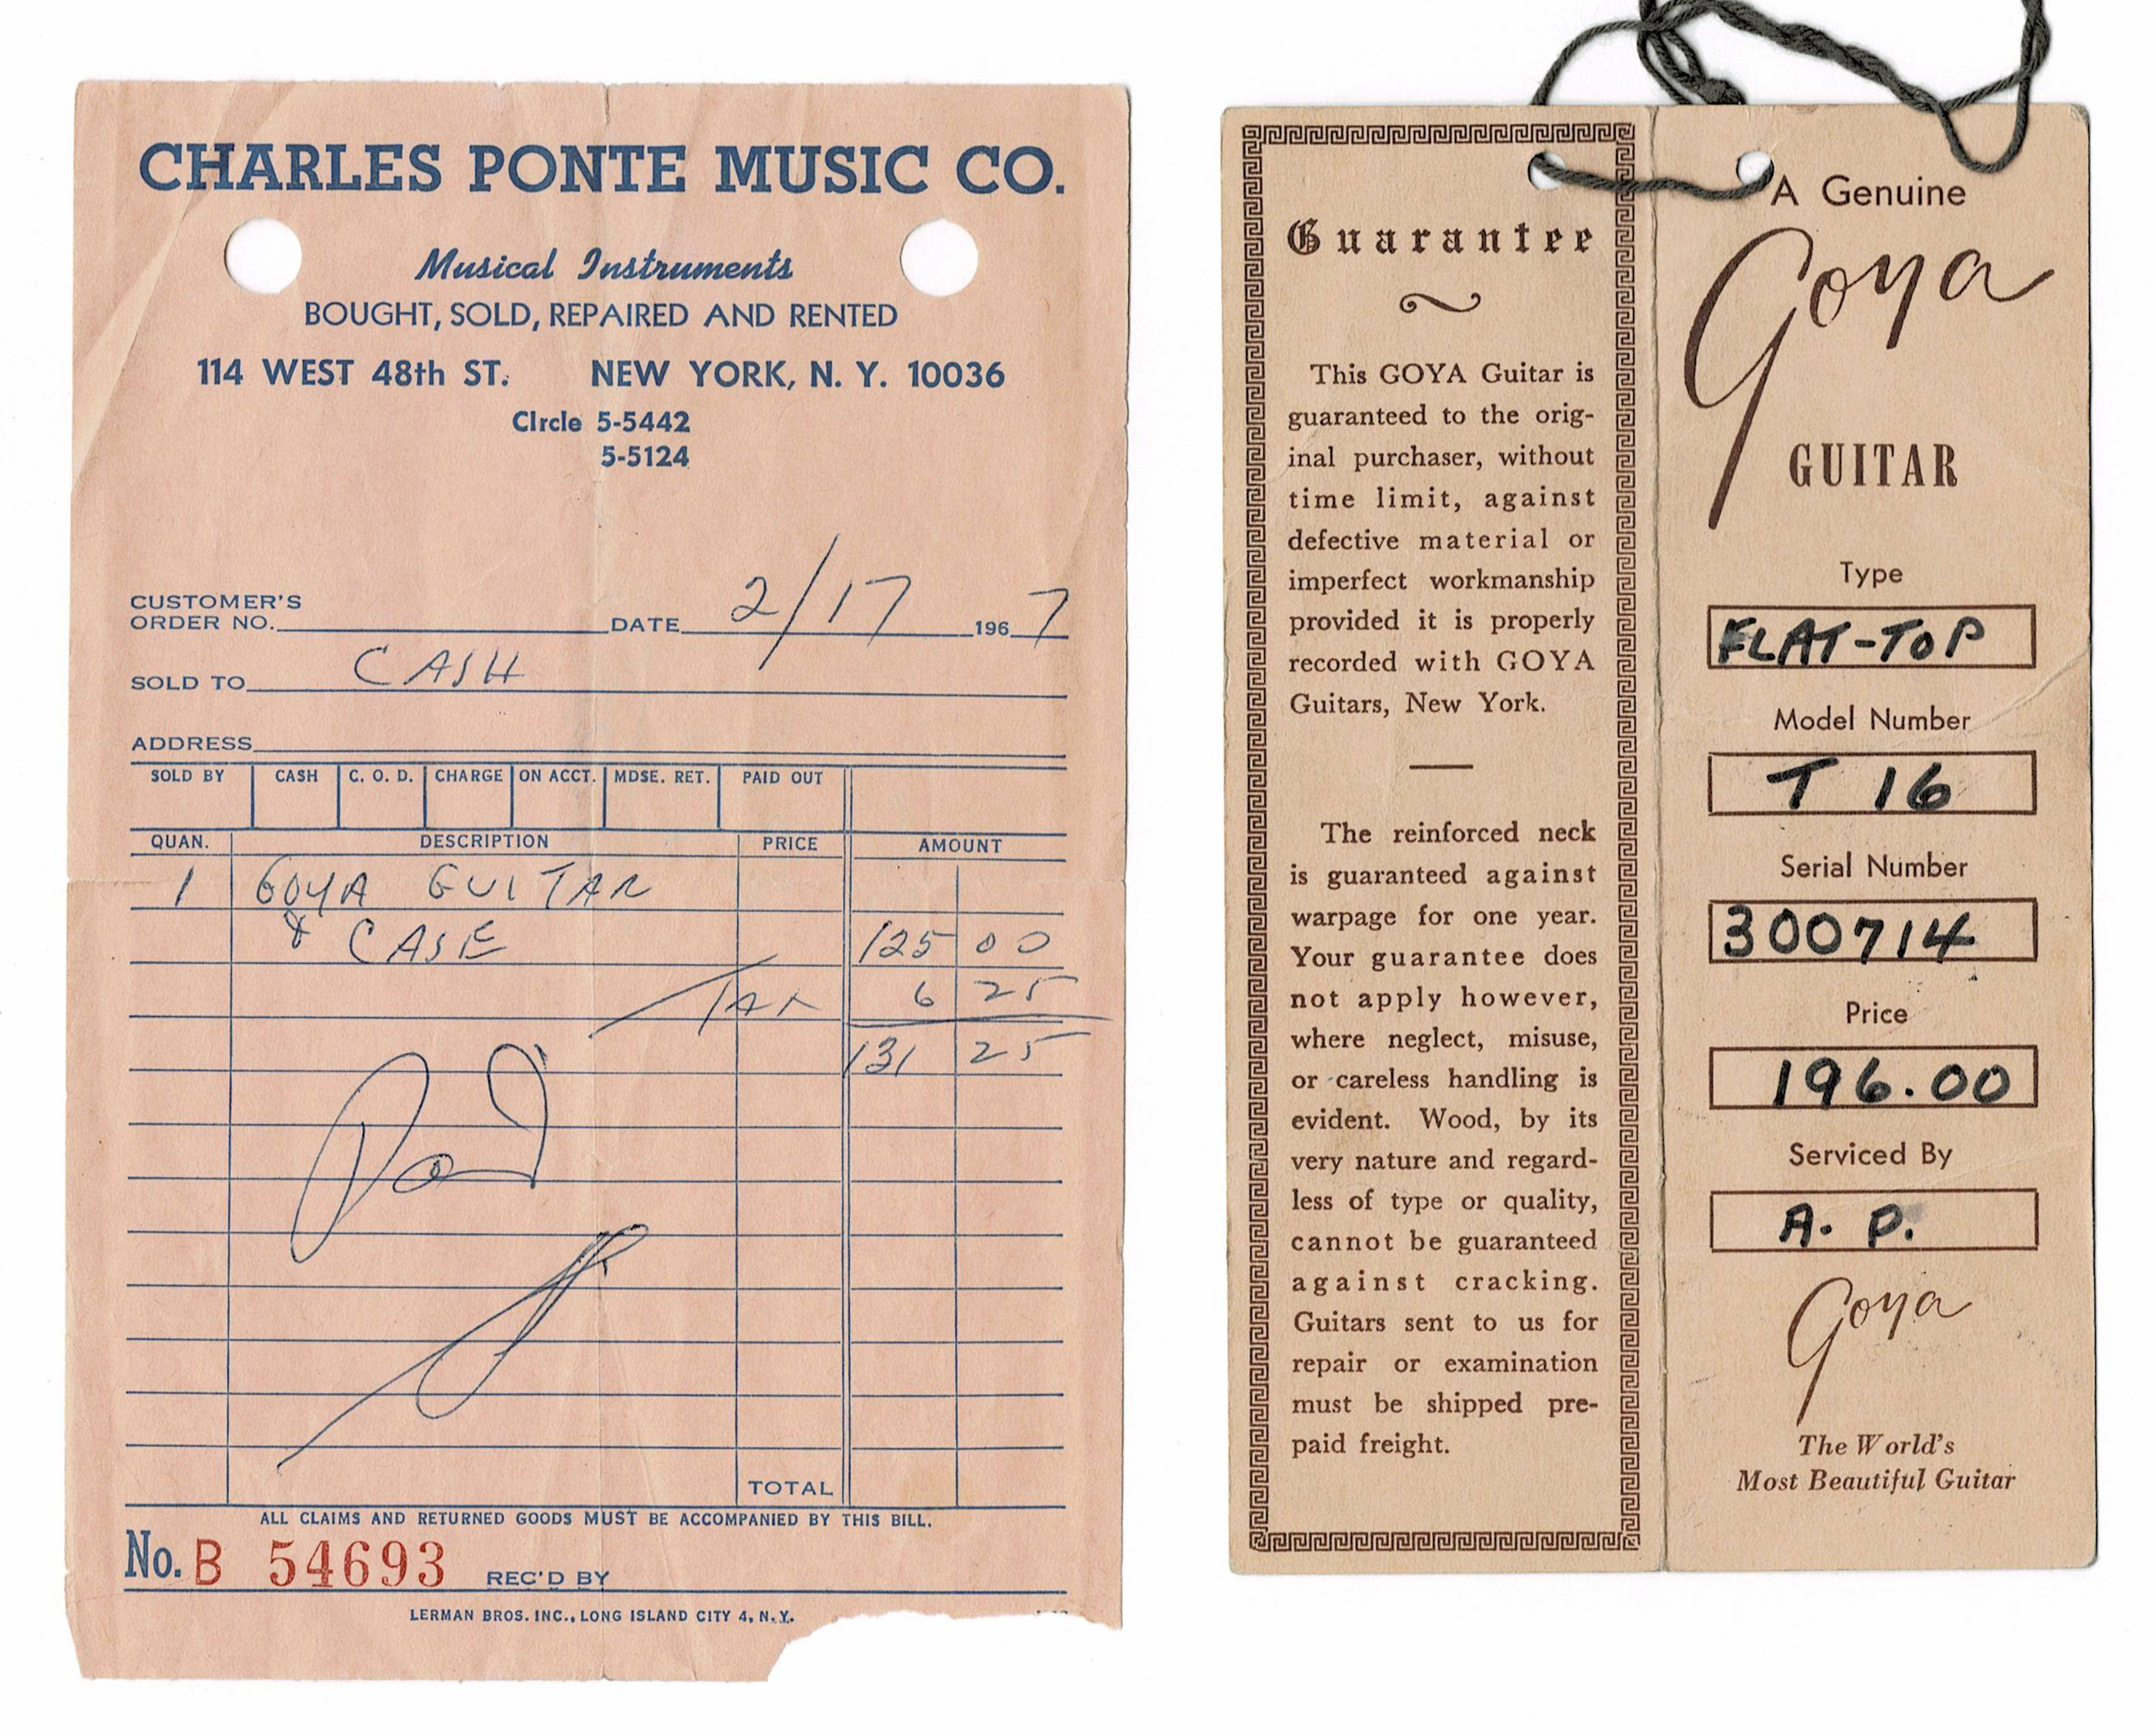 CHARLES PONTE MUSIC CO.
Musical Instruments
BOUGHT, SOLD, REPAIRED AND RENTED
114 WEST 48th ST. NEW YORK, N. Y. 10036
CIrcle 5-5442
5-5124
CUSTOMER'S
ORDER NO. DATE 2/17 1967
SOLD TO CASH
ADDRESS
SOLD BY CASH C. O. D. CHARGE ON ACCT. MDSE. RET. PAID OUT
QUAN. DESCRIPTION PRICE AMOUNT
1 GOYA GUITAR
& CASE 125 00
TAX 6 25
131 25
Paid
TOTAL
ALL CLAIMS AND RETURNED GOODS MUST BE ACCOMPANIED BY THIS BILL.
No. B 54693 REC'D BY
LERMAN BROS. INC., LONG ISLAND CITY 4, N.Y.
Guarantee
This GOYA Guitar is
guaranteed to the orig-
inal purchaser, without
time limit, against
defective material or
imperfect workmanship
provided it is properly
recorded with GOYA
Guitars, New York.
The reinforced neck
is guaranteed against
warpage for one year.
Your guarantee does
not apply however,
where neglect, misuse,
or careless handling is
evident. Wood, by its
very nature and regard-
less of type or quality,
cannot be guaranteed
against cracking.
Guitars sent to us for
repair or examination
must be shipped pre-
paid freight.
A Genuine
Goya
GUITAR
Type
FLAT-TOP
Model Number
T 16
Serial Number
300714
Price
196.00
Serviced By
A. P.
Goya
The World's
Most Beautiful Guitar